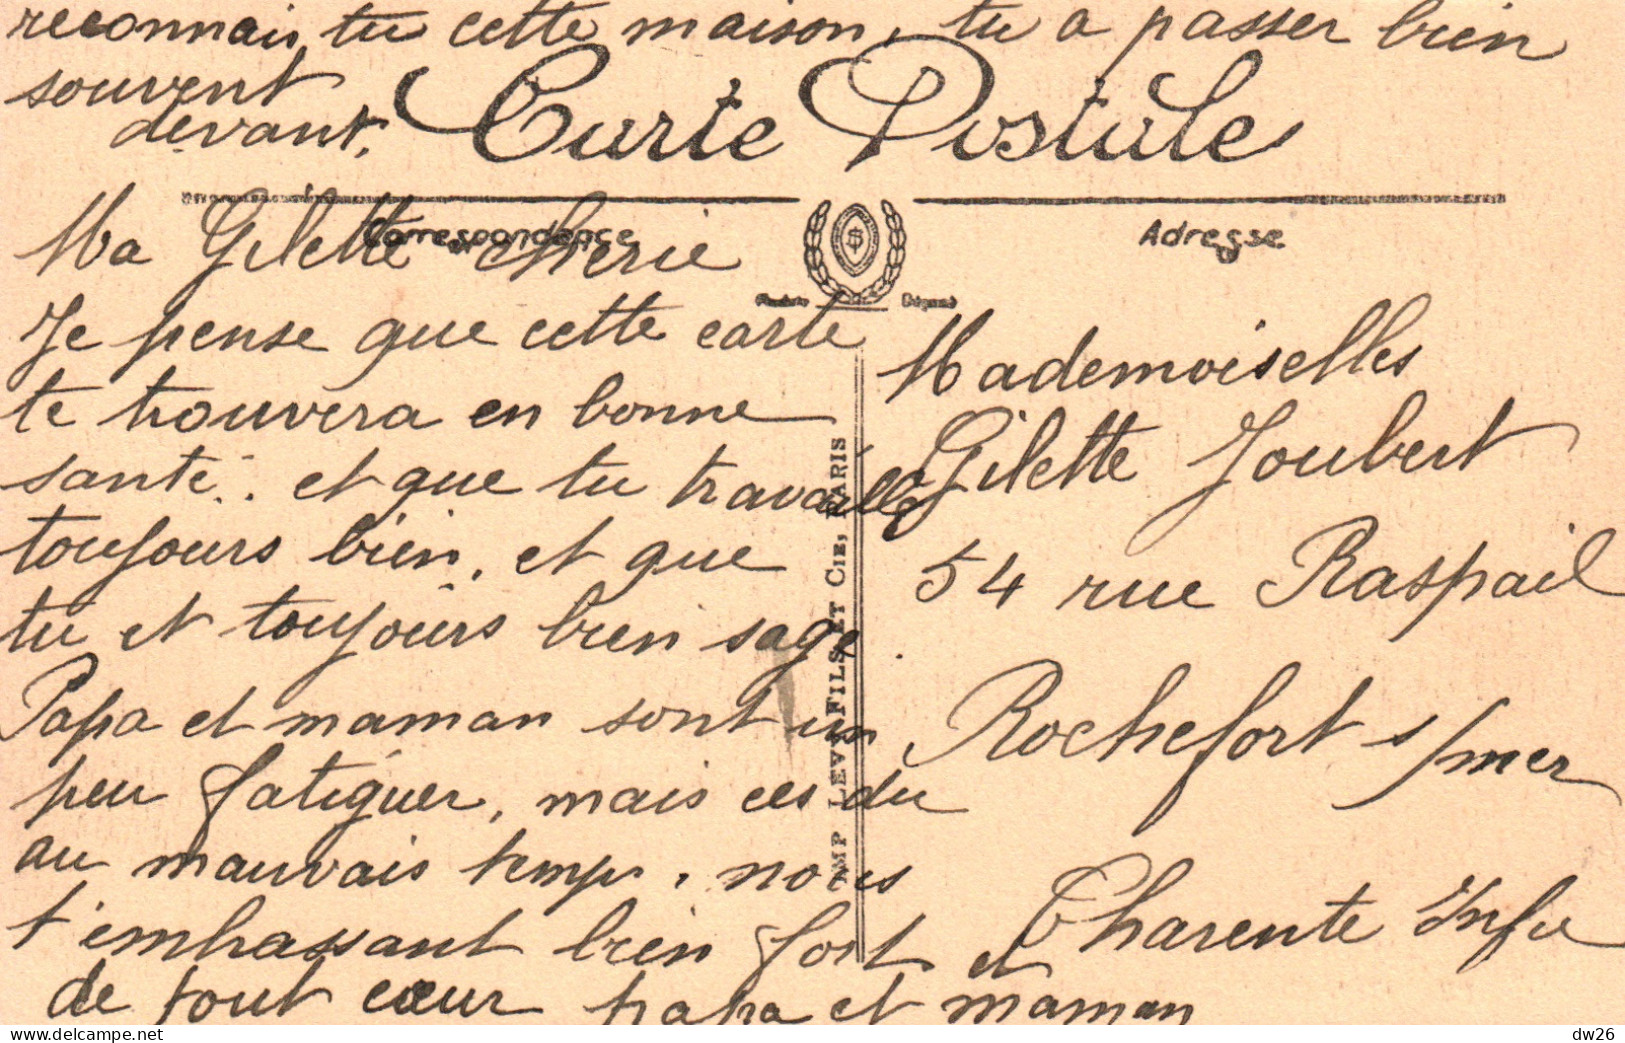 reconnais tu cette maison, tu a passer bien
souvent
devant.
Carte Postale
Correspondance
Adresse
Ma Gilette cherie
Je pense que cette carte
te trouvera en bonne
santé. et que tu travailles
toujours bien, et que
tu et toujours bien sage
Papa et maman sont un
peu fatiguer, mais ces du
au mauvais temps, nous
t'embrassant bien fort et
de tout cœur papa et maman
IMP LEVY FILS ET CIE, PARIS
Mademoiselles
Gilette Joubert
54 rue Raspail
Rochefort s/mer
Charente Infre
de-de.delcampe.net
dw26